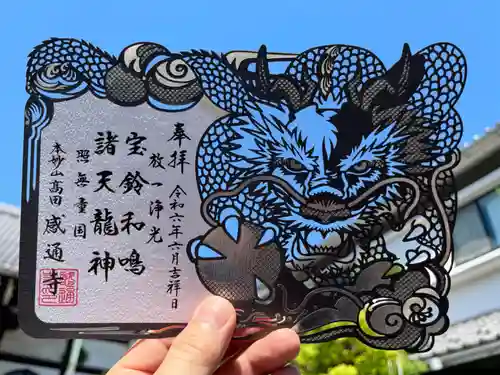 奉拝
令和六年六月吉祥日
放一浄光
宝鈴和鳴
諸天龍神
照無量国
本妙山高田
感通寺